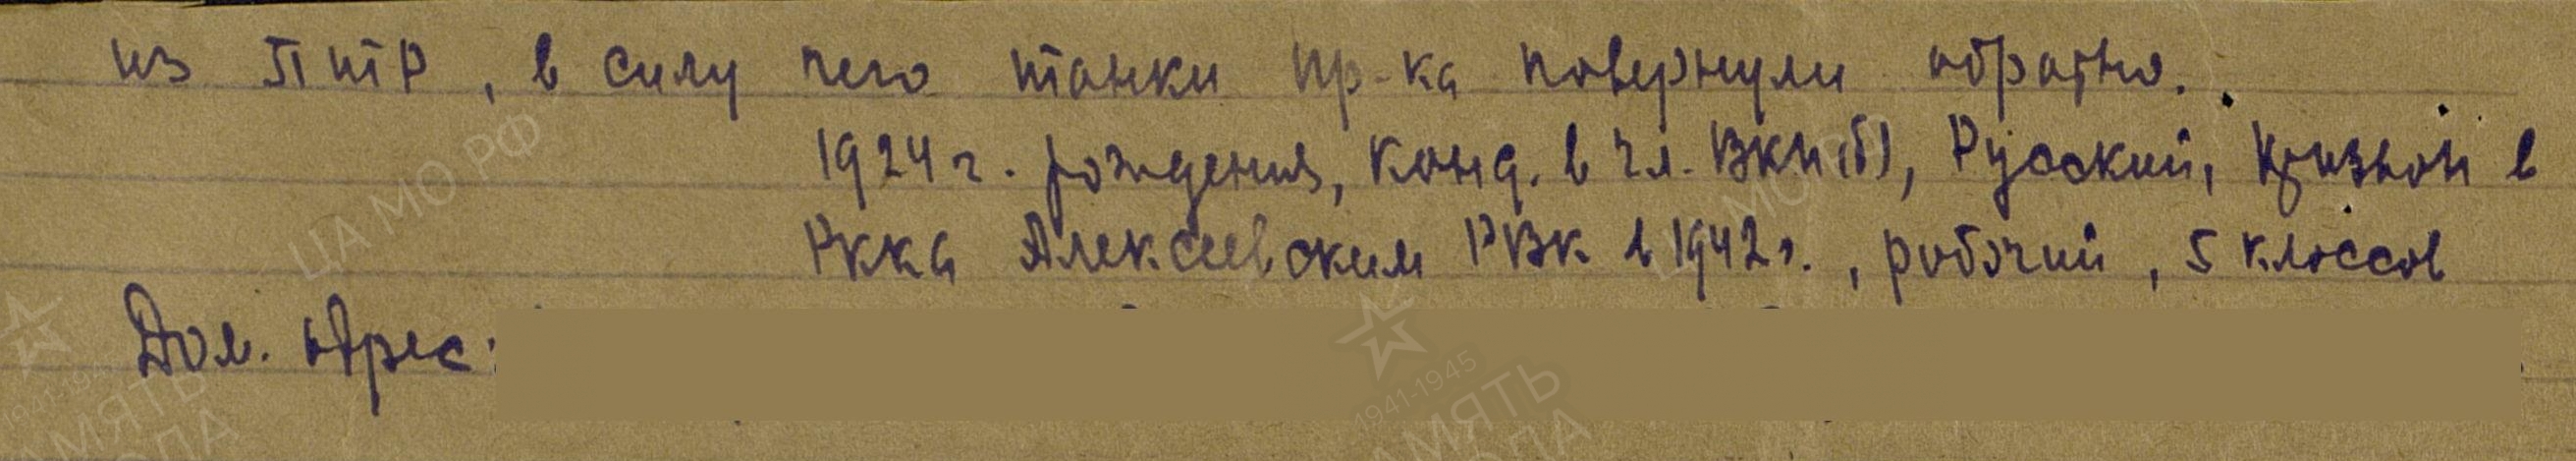 из ПТР, в силу чего танки пр-ка повернули обратно.
1924 г. рождения, канд. в чл. ВКП(б), Русский, призван в
РККА Алексеевским РВК в 1942 г., рабочий, 5 классов
Дом. адрес:
ЦА МО РФ
1941-1945
ПАМЯТЬ